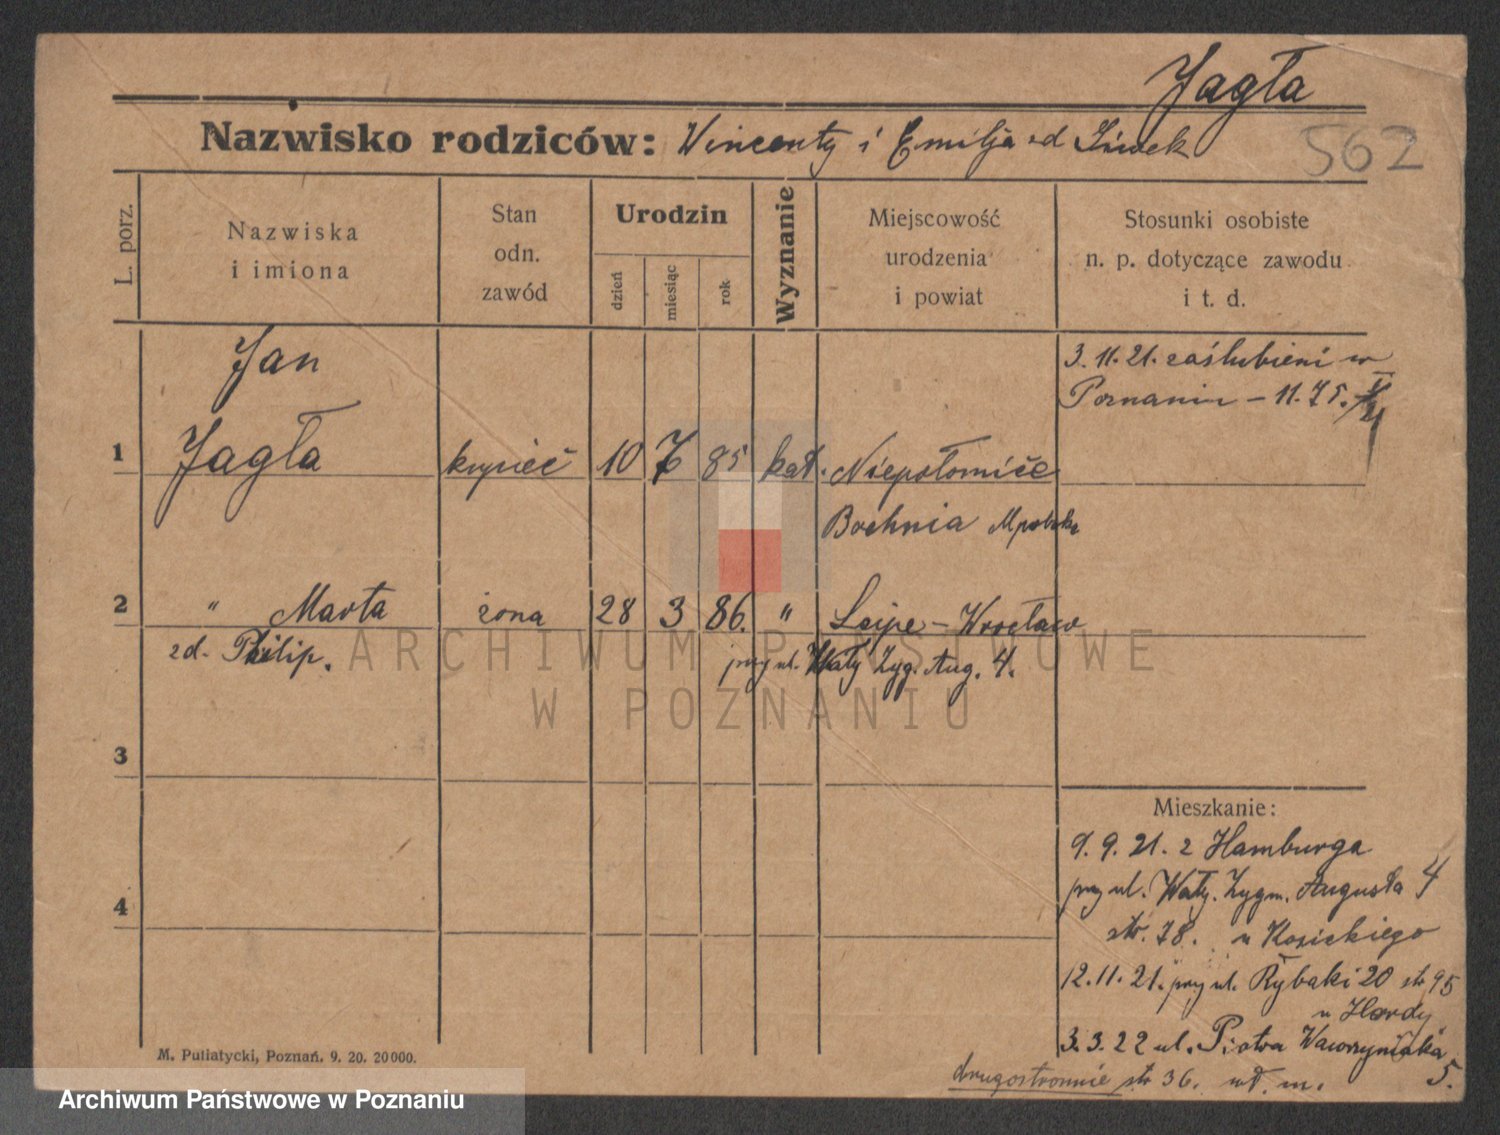 Jagła
Nazwisko rodziców: Wincenty i Emilja zd Śiwek
562
L. porz.
Nazwiska
i imiona
Stan
odn.
zawód
Urodzin
dzień
miesiąc
rok
Wyznanie
Miejscowość
urodzenia
i powiat
Stosunki osobiste
n. p. dotyczące zawodu
i t. d.
Jan
3. 11. 21. zaślubieni w
Poznaniu – 11.
1 Jagła kupiec 10 7 85 kat. Niepołomice
Bochnia Mpolska
2 " Marta żona 28 3 86. " Leipe – Wrocław
zd. Philip.
przy ul. Wały Zyg. Aug. 4.
ARCHIWUM PAŃSTWOWE
W POZNANIU
3
Mieszkanie:
9. 9. 21. z Hamburga
przy ul. Wały. Zygm. Augusta 4
str. 78. u Kosickiego
4
12. 11. 21. przy ul. Rybaki 20 str 95
u Hardy
3. 3. 22 ul. Piotra Wawrzyniaka
5.
drugostronnie str 36. wł. m.
M. Putiatycki, Poznań. 9. 20. 20000.
Archiwum Państwowe w Poznaniu